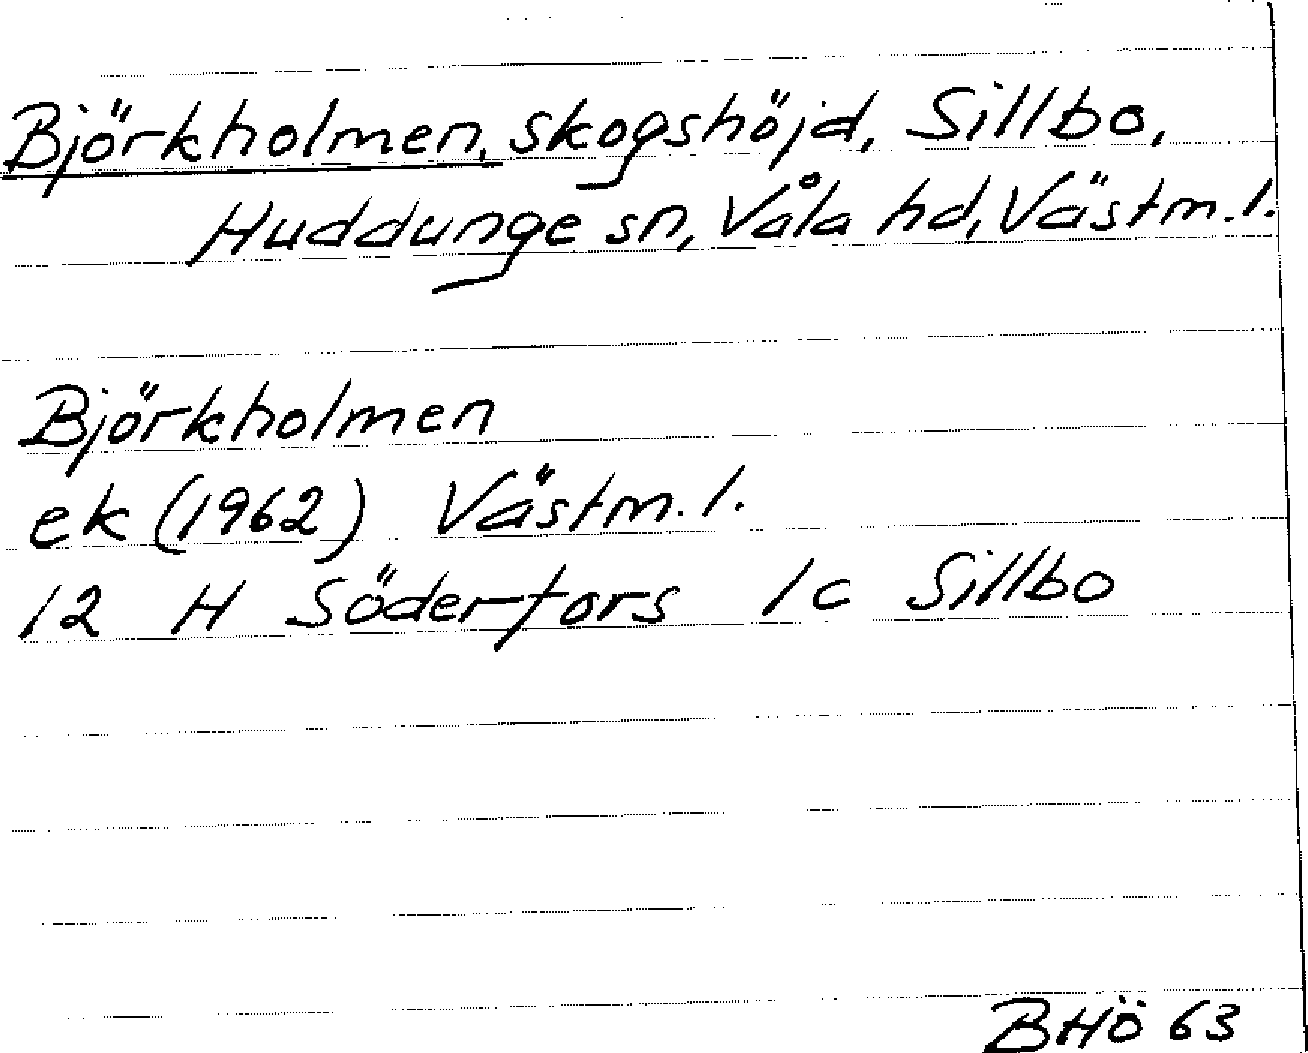 Björkholmen, skogshöjd, Sillbo,
Huddunge sn, Våla hd, Västm. l.
Björkholmen
ek (1962) Västm. l.
12 H Söderfors 1c Sillbo
BHÖ 63